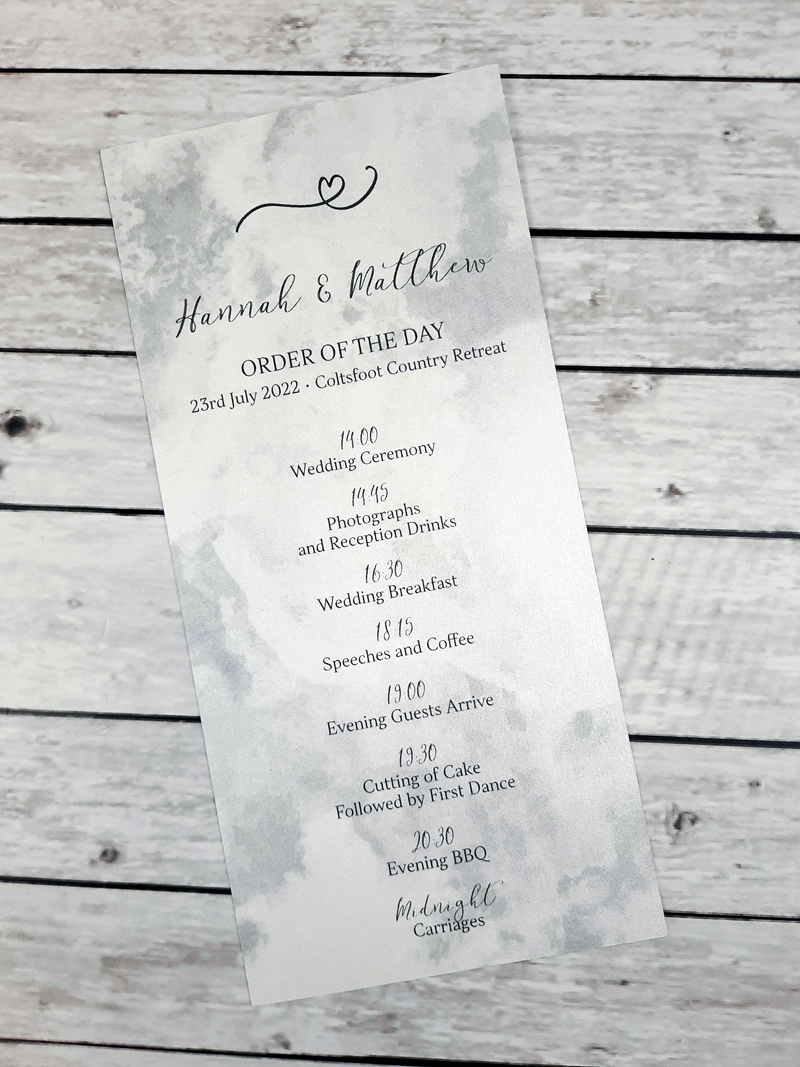 Hannah & Matthew
ORDER OF THE DAY
23rd July 2022 · Coltsfoot Country Retreat
14:00
Wedding Ceremony
14:45
Photographs
and Reception Drinks
16:30
Wedding Breakfast
18:15
Speeches and Coffee
19:00
Evening Guests Arrive
19:30
Cutting of Cake
Followed by First Dance
20:30
Evening BBQ
Midnight
Carriages